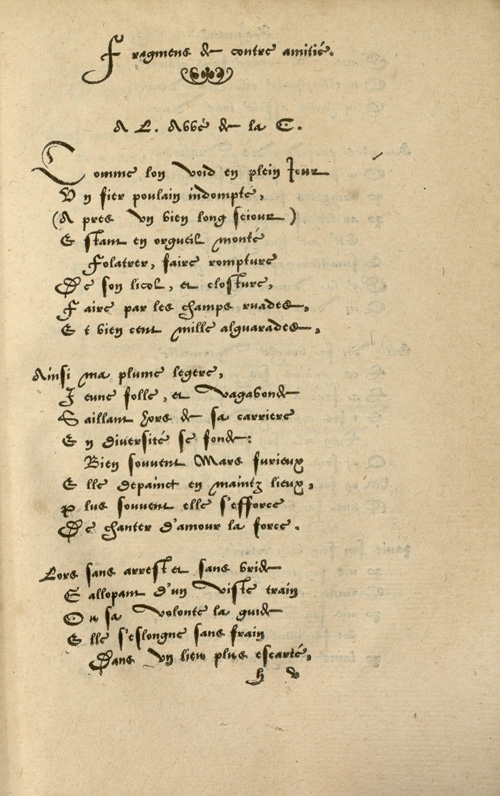 Fragmens de contre amitié.
A L. Abbé de la C.
Comme lon void en plein Jour
Vn fier poulain indompte,
(Apres vn bien long seiour)
Estant en orgueil monté
Folatrer, faire rompture
De son licol, et closture,
Faire par les champs ruades,
Et bien cent mille algarades,
Ainsi ma plume legere,
Ieune folle, et vagabonde
Saillant hors de sa carriere
En diuersité se fonde:
Bien souuent Mars furieux
Elle depainct en maintz lieux,
Plus souuent elle s'efforce
De chanter d'amour la force.
Lors sans arrest et sans bride
Gallopant d'un viste train
Ou sa volonte la guide
Elle s'eslongne sans frain
Dans vn lieu plus escarté,
h v